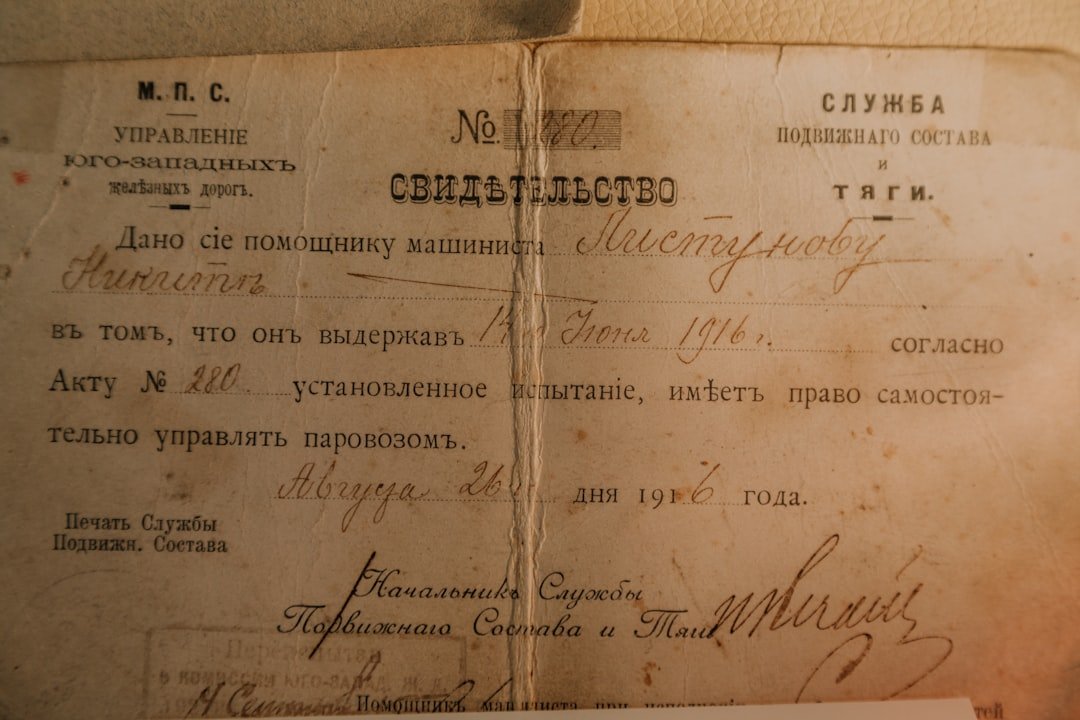 М. П. С.
УПРАВЛЕНІЕ
ЮГО-ЗАПАДНЫХЪ
желѣзныхъ дорогъ.
№ 280.
СЛУЖБА
ПОДВИЖНАГО СОСТАВА
И
ТЯГИ.
СВИДѢТЕЛЬСТВО
Дано сіе помощнику машиниста Пистунову
Никитѣ
въ томъ, что онъ выдержавъ Іюня 1916 г. согласно
Акту № 280. установленное испытаніе, имѣетъ право самостоя-
тельно управлять паровозомъ.
Августа 26 дня 1916 года.
Печать Службы
Подвижн. Состава
Начальникъ Службы
Подвижнаго Состава и Тяги
В КОМИССИИ ЮГО-ЗАПАД.
Помощникъ машиниста при